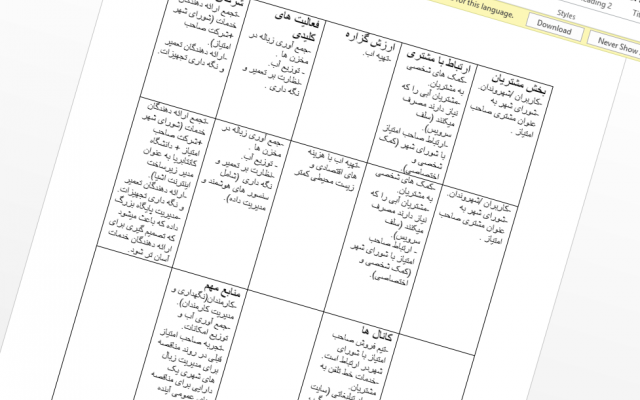 for this language.
Download
Never Show
Styles
Heading 2
بخش مشتریان
-کاربران /شهروندان.
-شورای شهر به
عنوان مشتری صاحب
امتیاز .
ارتباط با مشتری
-کمک های شخصی
به مشتریان.
-مشتریان آبی را که
نیاز دارند مصرف
میکنند (سلف
سرویس).
-ارتباط صاحب امتیاز
با شورای شهر (کمک
شخصی و
اختصاصی).
ارزش گزاره
-تهیه آب.
فعالیت های
کلیدی
-جمع آوری زباله در
مخزن ها .
- توزیع آب.
-نظارت بر تعمیر و
نگه داری .
-تجمع ارائه دهندگان
خدمات (شورای شهر
+شرکت صاحب
امتیاز).
-ارائه دهندگان تعمیر
و نگه داری تجهیزات.
-کاربران /شهروندان.
-شورای شهر به
عنوان مشتری صاحب
امتیاز .
-کمک های شخصی
به مشتریان.
-مشتریان آبی را که
نیاز دارند مصرف
میکنند (سلف
سرویس).
- ارتباط صاحب
امتیاز با شورای شهر
(کمک شخصی و
اختصاصی).
-تهیه آب با هزینه
های اقتصادی و
زیست محیطی کمتر
-جمع آوری زباله در
مخزن ها .
- توزیع آب.
-نظارت بر تعمیر و
نگه داری (شامل
سنسور های هوشمند و
مدیریت داده).
-تجمع ارائه دهندگان
خدمات (شورای شهر
+شرکت صاحب
امتیاز + دانشگاه
کانتابریا به عنوان
مدیر زیرساخت
اینترنت اشیا).
-ارائه دهندگان تعمیر
و نگه داری تجهیزات.
-مدیریت پایگاه بزرگ
داده که باعث میشود
که تصمیم گیری برای
ارائه دهندگان خدمات
آسان تر شود.
کانال ها
-تیم فروش صاحب
امتیاز با شورای
شهر در ارتباط است.
-خدمات خط تلفن به
مشتریان.
تبلیغاتی (سایت
منابع مهم
-کارمندان(نگهداری و
مدیریت کارمندان).
-جمع آوری آب و
توزیع امکانات.
-تجربه صاحب امتیاز
قبلی در روند مناقصه
برای مدیریت زبال
های شهری یک
دارایی برای مناقصه
های عمومی آینده